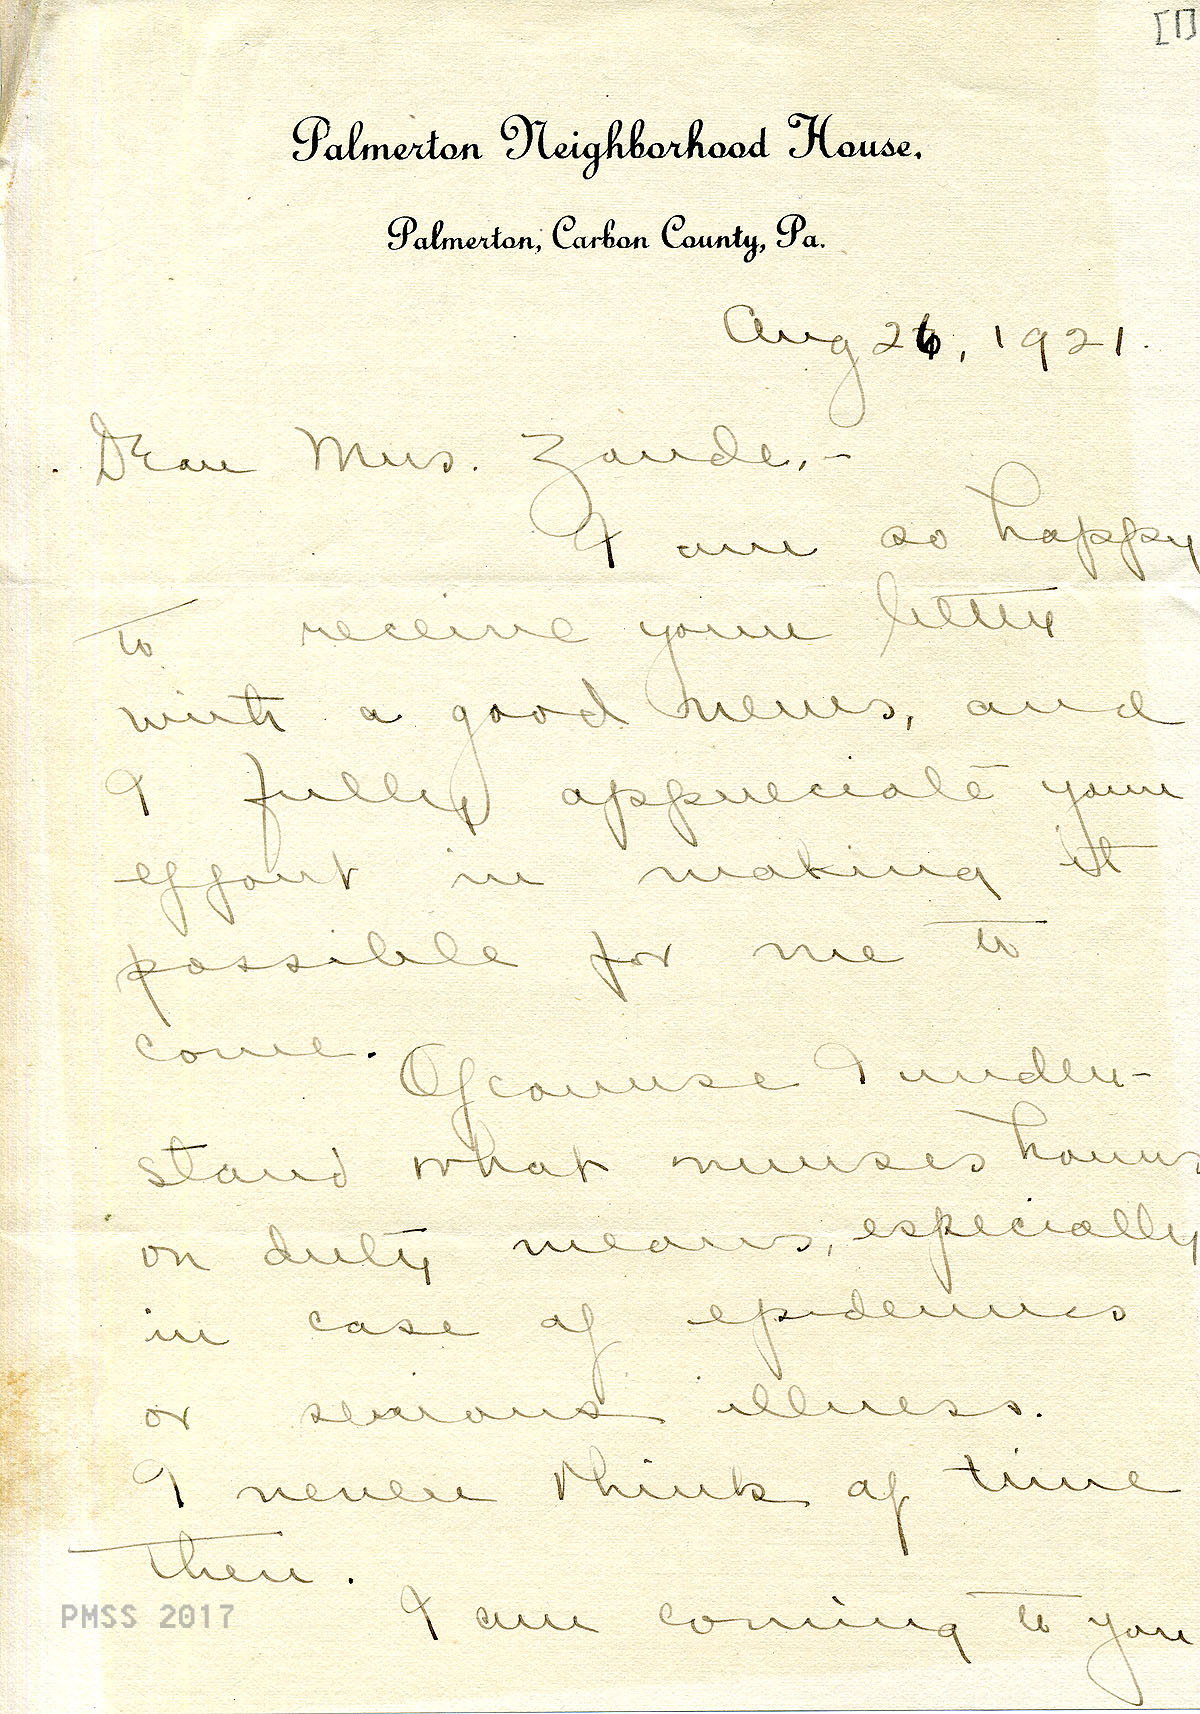 [1]
Palmerton Neighborhood House,
Palmerton, Carbon County, Pa.
Aug 26, 1921.
Dear Mrs. Zande,-
I am so happy
to receive your letter
with a good news, and
I fully appreciate your
effort in making it
possible for me to
come.
Ofcourse I under-
stand what nurses hours
on duty means, especially
in case of epidemics
or serious illness.
I never think of time
then.
I am coming to you
PMSS 2017